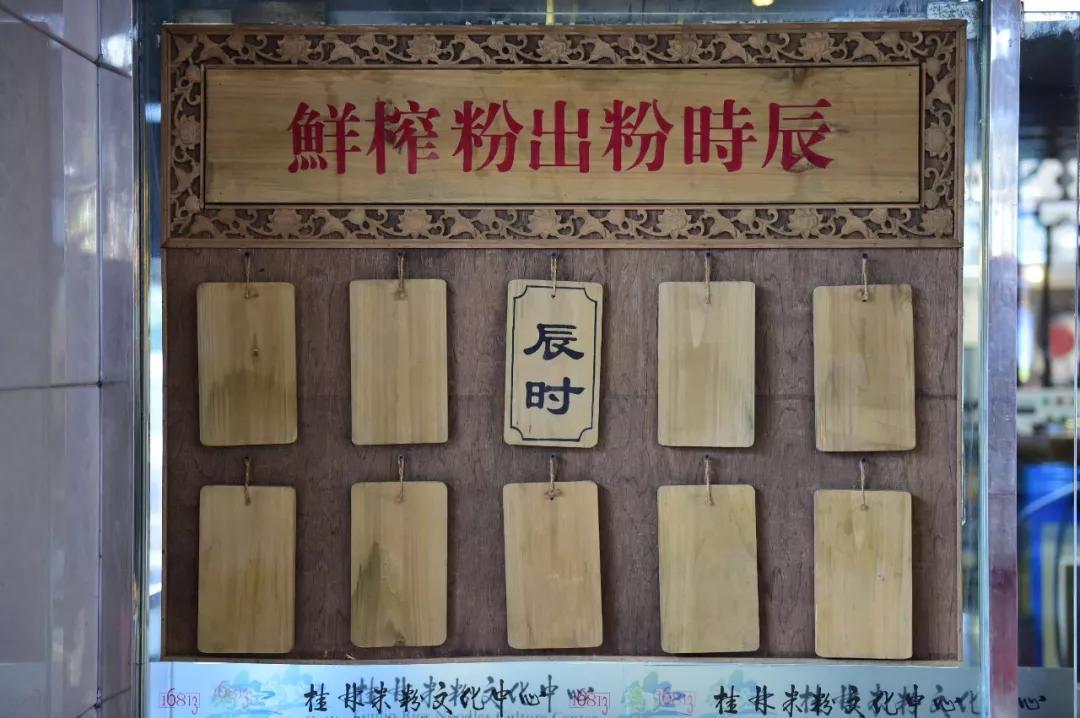 鮮榨粉出粉時辰
辰
时
16813 桂林米粉文化中心 16813 桂林米粉文化中心